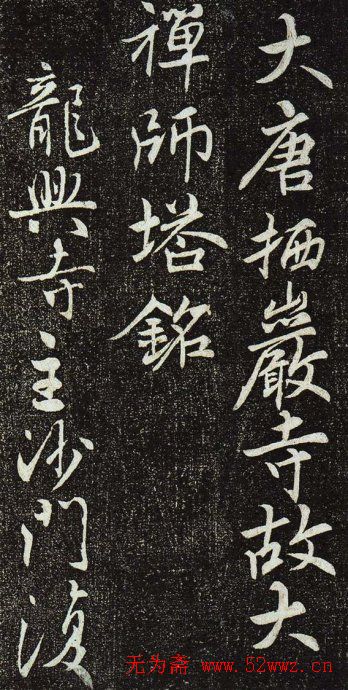 大唐栖巖寺故大
禪師塔銘
龍興寺主沙門復
无为斋 www.52wwz.cn